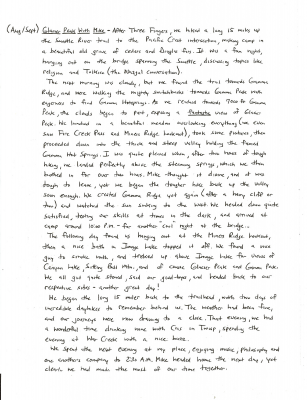 (Aug/Sept) Glacier Peak With Mike - After Three Fingers, we hiked a long 15 miles up
the Suiattle River trail to the Pacific Crest intersection, making camp in
a beautiful old grove of cedars and Douglas Firs. It was a fun night,
hanging out on the bridge spanning the Suiattle, discussing topics like
religion and Tolkien (the *** conversation).
The next morning was cloudy, but we found the trail towards Gamma
Ridge, and were walking the mighty switchbacks towards Gamma Peak with
eagerness to find Gamma Hotsprings. As we reached towards 7000 to Gamma
Peak, the clouds began to part, exposing a fantastic view of Glacier
Peak. We lunched in a beautiful meadow overlooking everything (we even
saw Fire Creek Pass and Mines Ridge lookout), took some pictures, then
proceeded down into the thick and steep valley holding the famed
Gamma Hot Springs. I was quite pleased when, after two hours of tough
hiking, we landed perfectly above the steaming springs, which we then
bathed in for over two hours. Mike thought it divine, and it was
tough to leave, yet we began the tougher hike back up the valley
soon enough. We crested Gamma Ridge yet again (after a hairy cliff or
two) and watched the sun setting to the west. We headed down quite
satisfied, testing our skills at times in the dark, and arrived at
camp around 10:00 P.M. - for another cool night at the bridge...
The following day found us hanging out at the Miners Ridge lookout,
then a nice bath in Image Lake topped it off. We found a nice
guy to smoke with, and trekked up above Image Lake for views of
Canyon Lake, Sitting Bull Mtn., and of course Glacier Peak and Gamma Peak.
We all got quite stoned, said our good-byes, and headed back to our
respective sites - another great day!
We began the long 15 miler back to the trailhead, with two days of
incredible daylikes to remember behind us. The weather had been fine,
and our journeys were now drawing to a close. That evening, we had
a wonderful time drinking wine with Cris in Twisp, spending the
evening at War Creek with a nice bake.
We spent the next evening at my place, enjoying music, philosophy and
one anothers company to Zilo Aim. Mike headed home the next day, yet
clearly we had made the most of our time together.